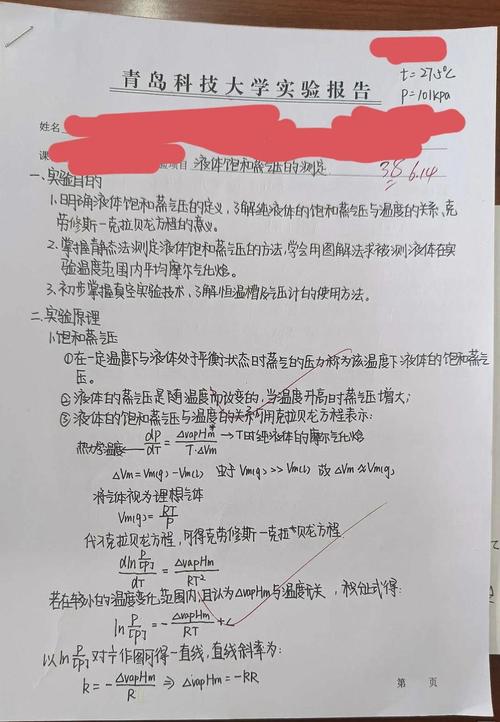 t=27.5℃
p=101kpa
青岛科技大学实验报告
姓名
课
验项目 液体饱和蒸气压的测定
38 6.14
一.实验目的
1.明确液体饱和蒸气压的定义,了解纯液体的饱和蒸气压与温度的关系、克
劳修斯-克拉贝龙方程的意义。
2.掌握静态法测定液体饱和蒸气压的方法,学会用图解法求被测液体在实
验温度范围内平均摩尔气化焓。
3.初步掌握真空实验技术,了解恒温槽及气压计的使用方法。
二.实验原理
1.饱和蒸气压
①在一定温度下与液体处于平衡状态时蒸气的压力称为该温度下液体的饱和蒸气
压。
②液体的蒸气压是随温度而改变的,当温度升高时蒸气压增大;
③液体的饱和蒸气压与温度的关系可用克拉贝龙方程表示:
热力学温度— dP/dT = ΔvapHm*/T·ΔVm →T时纯液体的摩尔气化焓
ΔVm=Vm(g)-Vm(l) 由于Vm(g)>>Vm(l) 故ΔVm≈Vm(g)
将气体视为理想气体
Vm(g)=RT/P
代入克拉贝龙方程,可得克劳修斯-克拉贝龙方程
dln P/[P]/dT = ΔvapHm/RT²
若在较小的温度变化范围内且认为ΔvapHm与温度无关,积分式得:
ln P/[P] = -ΔvapHm/RT +C
以ln P/[P] 对 1/T 作图可得一直线,直线斜率为:
k=-ΔvapHm/R ⇒ ΔvapHm=-kR
第 页